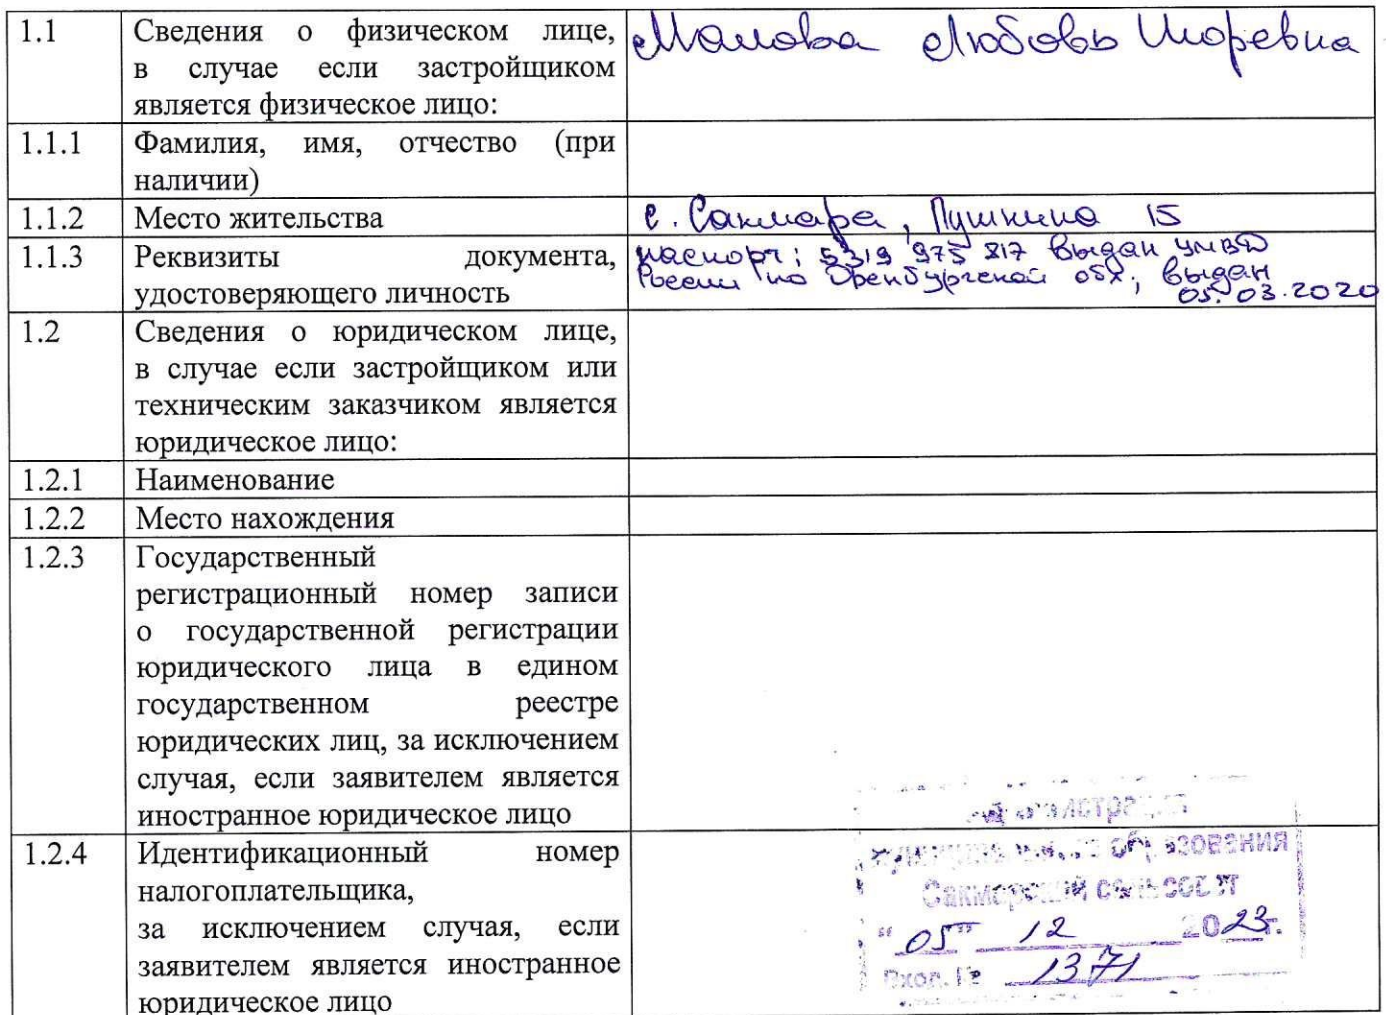 1.1 Сведения о физическом лице, Малова Любовь Игоревна
в случае если застройщиком
является физическое лицо:
1.1.1 Фамилия, имя, отчество (при
наличии)
1.1.2 Место жительства с. Сакмара, Пушкина 15
1.1.3 Реквизиты документа, паспорт: 5319 975 817 выдан УМВД
удостоверяющего личность России по Оренбургской обл., выдан
05.03.2020
1.2 Сведения о юридическом лице,
в случае если застройщиком или
техническим заказчиком является
юридическое лицо:
1.2.1 Наименование
1.2.2 Место нахождения
1.2.3 Государственный
регистрационный номер записи
о государственной регистрации
юридического лица в едином
государственном реестре
юридических лиц, за исключением
случая, если заявителем является
иностранное юридическое лицо
1.2.4 Идентификационный номер
налогоплательщика,
за исключением случая, если
заявителем является иностранное
юридическое лицо
Администрация
муниципального образования
Сакмарский сельсовет
"05" 12 2023г.
Вход. № 1371